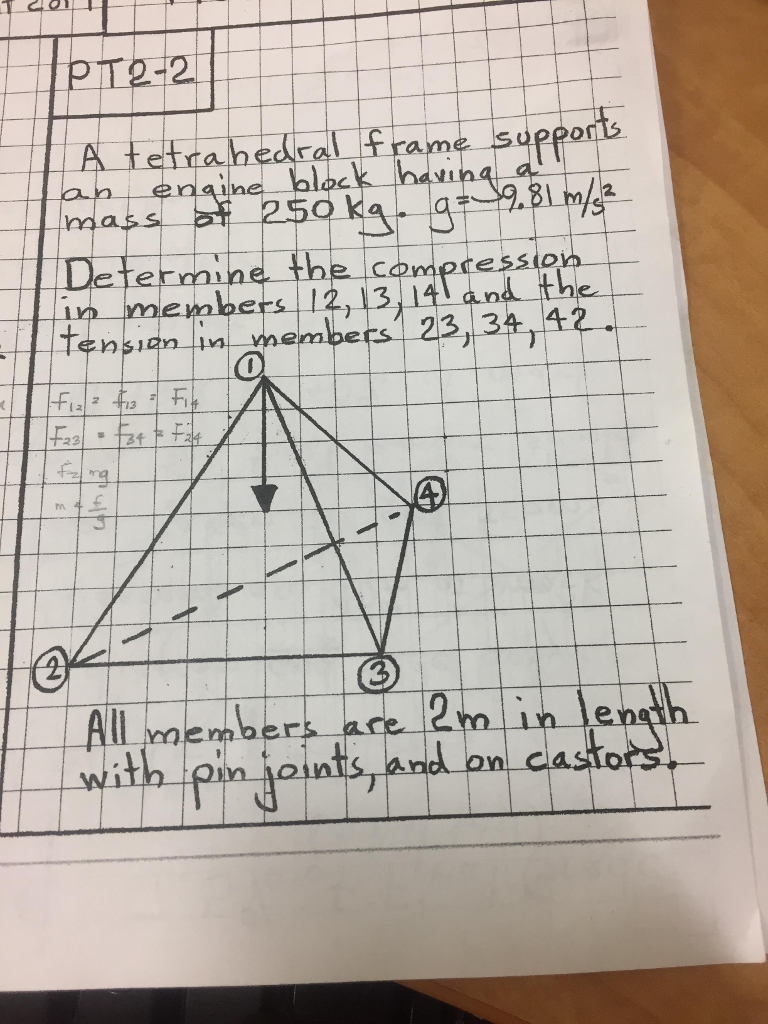 PT2-2
A tetrahedral frame supports
an engine block having a
mass of 250kg. g=9.81 m/s²
Determine the compression
in members 12, 13, 14 and the
tension in members 23, 34, 42.
1
F12 = F13 = F14
F23 = F34 = F24
F= mg
m = F/g
4
2
3
All members are 2m in length
with pin joints, and on castors.